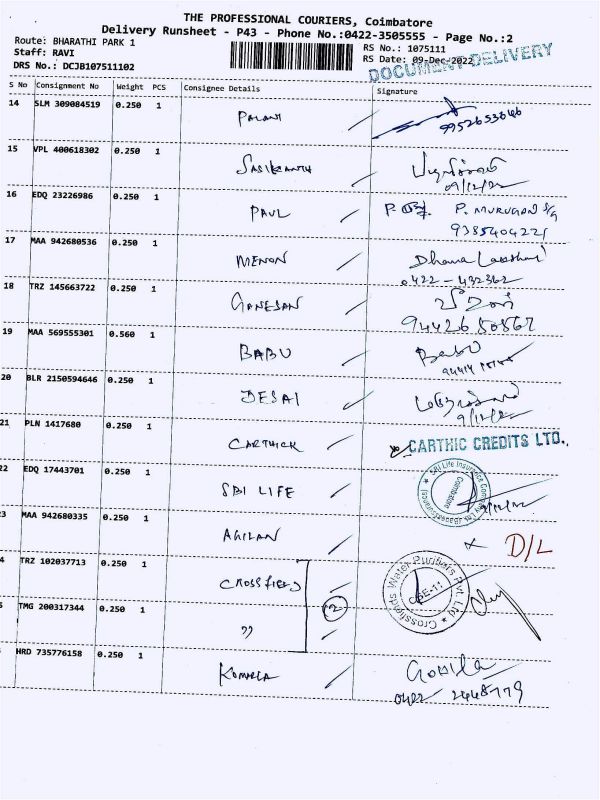 THE PROFESSIONAL COURIERS, Coimbatore
Delivery Runsheet - P43 - Phone No.:0422-3505555 - Page No.:2
Route: BHARATHI PARK 1
RS No.: 1075111
Staff: RAVI
RS Date: 09-Dec-2022
DRS No.: DCJB107511102
DOCUMENT DELIVERY
S No Consignment No Weight PCS Consignee Details Signature
14 SLM 309084519 0.250 1 PALANI
15 VPL 400618302 0.250 1 SASIKANTH
09/12/22
16 EDQ 23226986 0.250 1 PAUL P. MURUGAN S/g
9385404221
17 MAA 942680536 0.250 1 MENON Dhana Lakshmi
0422 - 432362
18 TRZ 145663722 0.250 1 GANESAN
9442650567
19 MAA 569555301 0.560 1 BABU Babu
20 BLR 2150594646 0.250 1 DESAI
9/12/22
21 PLN 1417680 0.250 1 CARTHICK CARTHIC CREDITS LTD.,
22 EDQ 17443701 0.250 1 SBI LIFE SBI Life Insurance Company Ltd Coimbatore
3 MAA 942680335 0.250 1 AGILAN D/L
4 TRZ 102037713 0.250 1 CROSSFIELD Crossfields Water Purifiers Pvt. Ltd CBE-11
5 TMG 200317344 0.250 1 " 2
HRD 735776158 0.250 1 KOMALA Gomila
0422 2448779